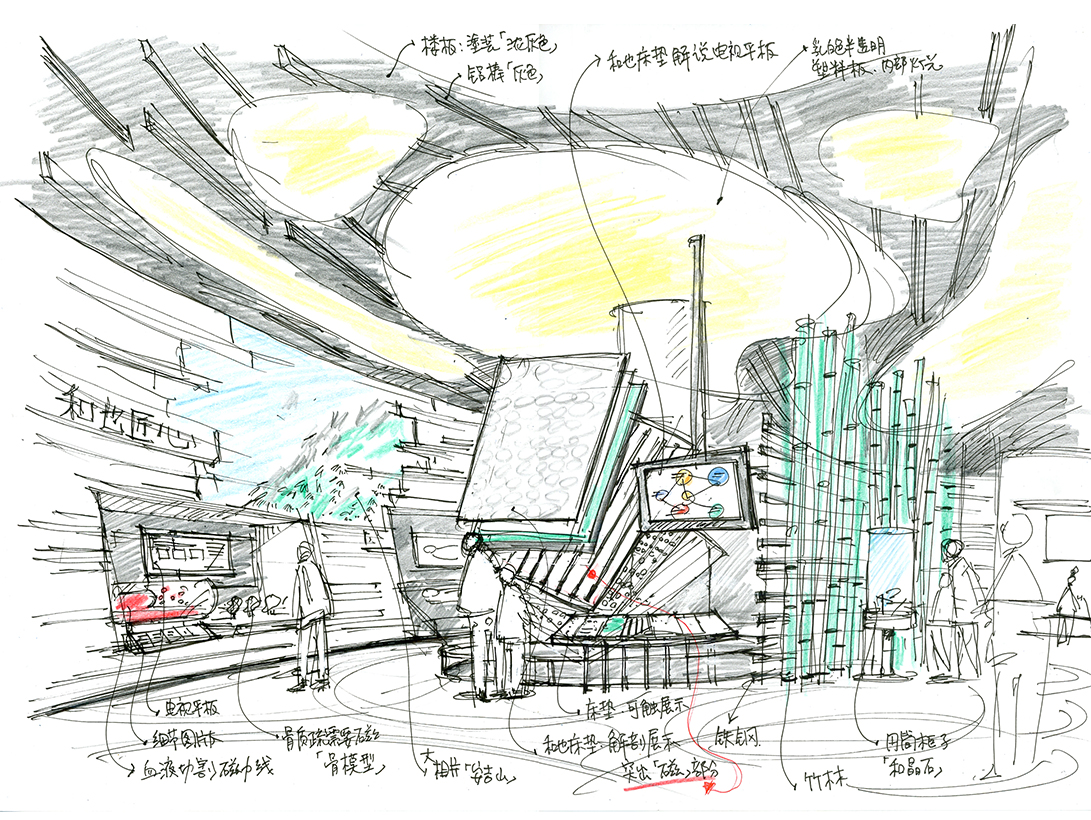 楼板:塗装「浓灰色」
铝棒「灰色」
和也床垫解说电视平板
乳白色半透明
塑料板、内部灯光
和也匠心
电视平板
细节图版
血液切割磁力线
骨质疏需要磁
「骨模型」
大
相片「安吉山」
床垫 可触展示
和也床垫 解剖展示
突出「磁」部分
铁钢
竹林
圆筒柜子
「和晶石」